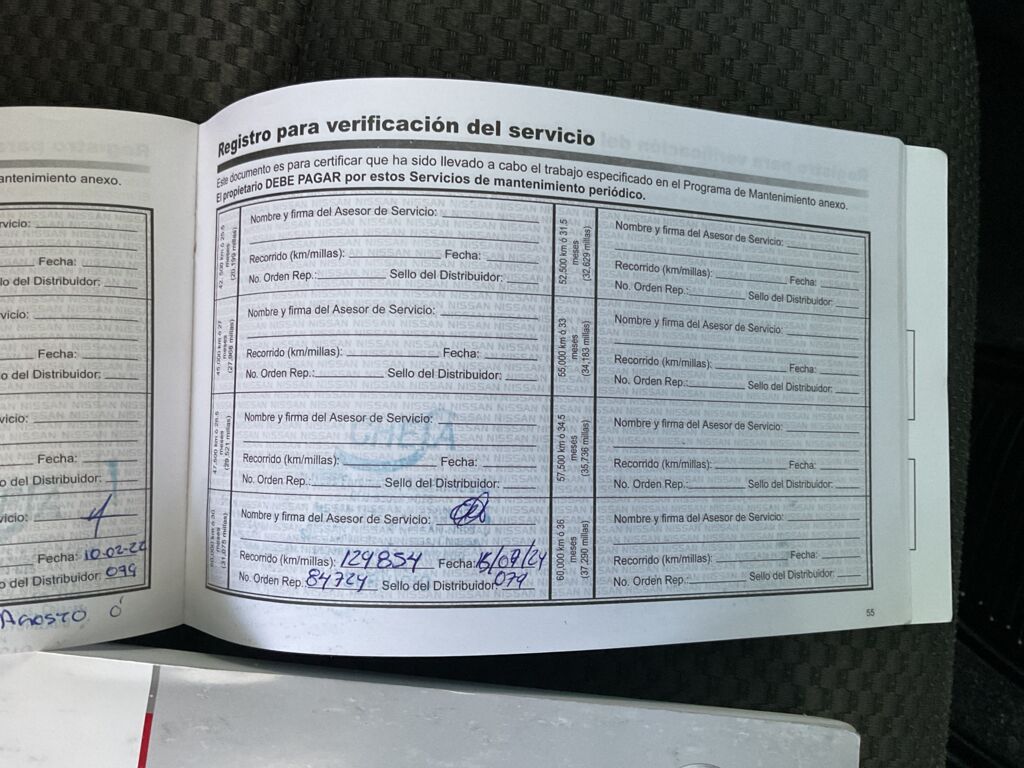 antenimiento anexo.
vicio:
Fecha:
lo del Distribuidor:
vicio:
Fecha:
o del Distribuidor:
vicio:
Fecha:
o del Distribuidor:
vicio:
Fecha: 10-02-22
o del Distribuidor: 099
AGOSTO Ó
Registro para verificación del servicio
Este documento es para certificar que ha sido llevado a cabo el trabajo especificado en el Programa de Mantenimiento anexo.
El propietario DEBE PAGAR por estos Servicios de mantenimiento periódico.
Nombre y firma del Asesor de Servicio:
Recorrido (km/millas): Fecha:
No. Orden Rep.: Sello del Distribuidor:
45,000 km ó 27
meses
Nombre y firma del Asesor de Servicio:
Recorrido (km/millas): Fecha:
No. Orden Rep.: Sello del Distribuidor:
meses
(29,521 millas)
Nombre y firma del Asesor de Servicio:
Recorrido (km/millas): Fecha:
No. Orden Rep.: Sello del Distribuidor:
Nombre y firma del Asesor de Servicio:
Recorrido (km/millas): 129854 Fecha:
No. Orden Rep. 84724 Sello del Distribuidor: 079
52,500 km ó 31.5
meses
(32,629 millas)
Nombre y firma del Asesor de Servicio:
Recorrido (km/millas): Fecha:
No. Orden Rep.: Sello del Distribuidor:
55,000 km ó 33
meses
(34,183 millas)
Nombre y firma del Asesor de Servicio:
Recorrido (km/millas): Fecha:
No. Orden Rep.: Sello del Distribuidor:
57,500 km ó 34.5
meses
(35,736 millas)
Nombre y firma del Asesor de Servicio:
Recorrido (km/millas): Fecha:
No. Orden Rep.: Sello del Distribuidor:
60,000 km ó 36
meses
(37,290 millas)
Nombre y firma del Asesor de Servicio:
Recorrido (km/millas): Fecha:
No. Orden Rep.: Sello del Distribuidor:
55